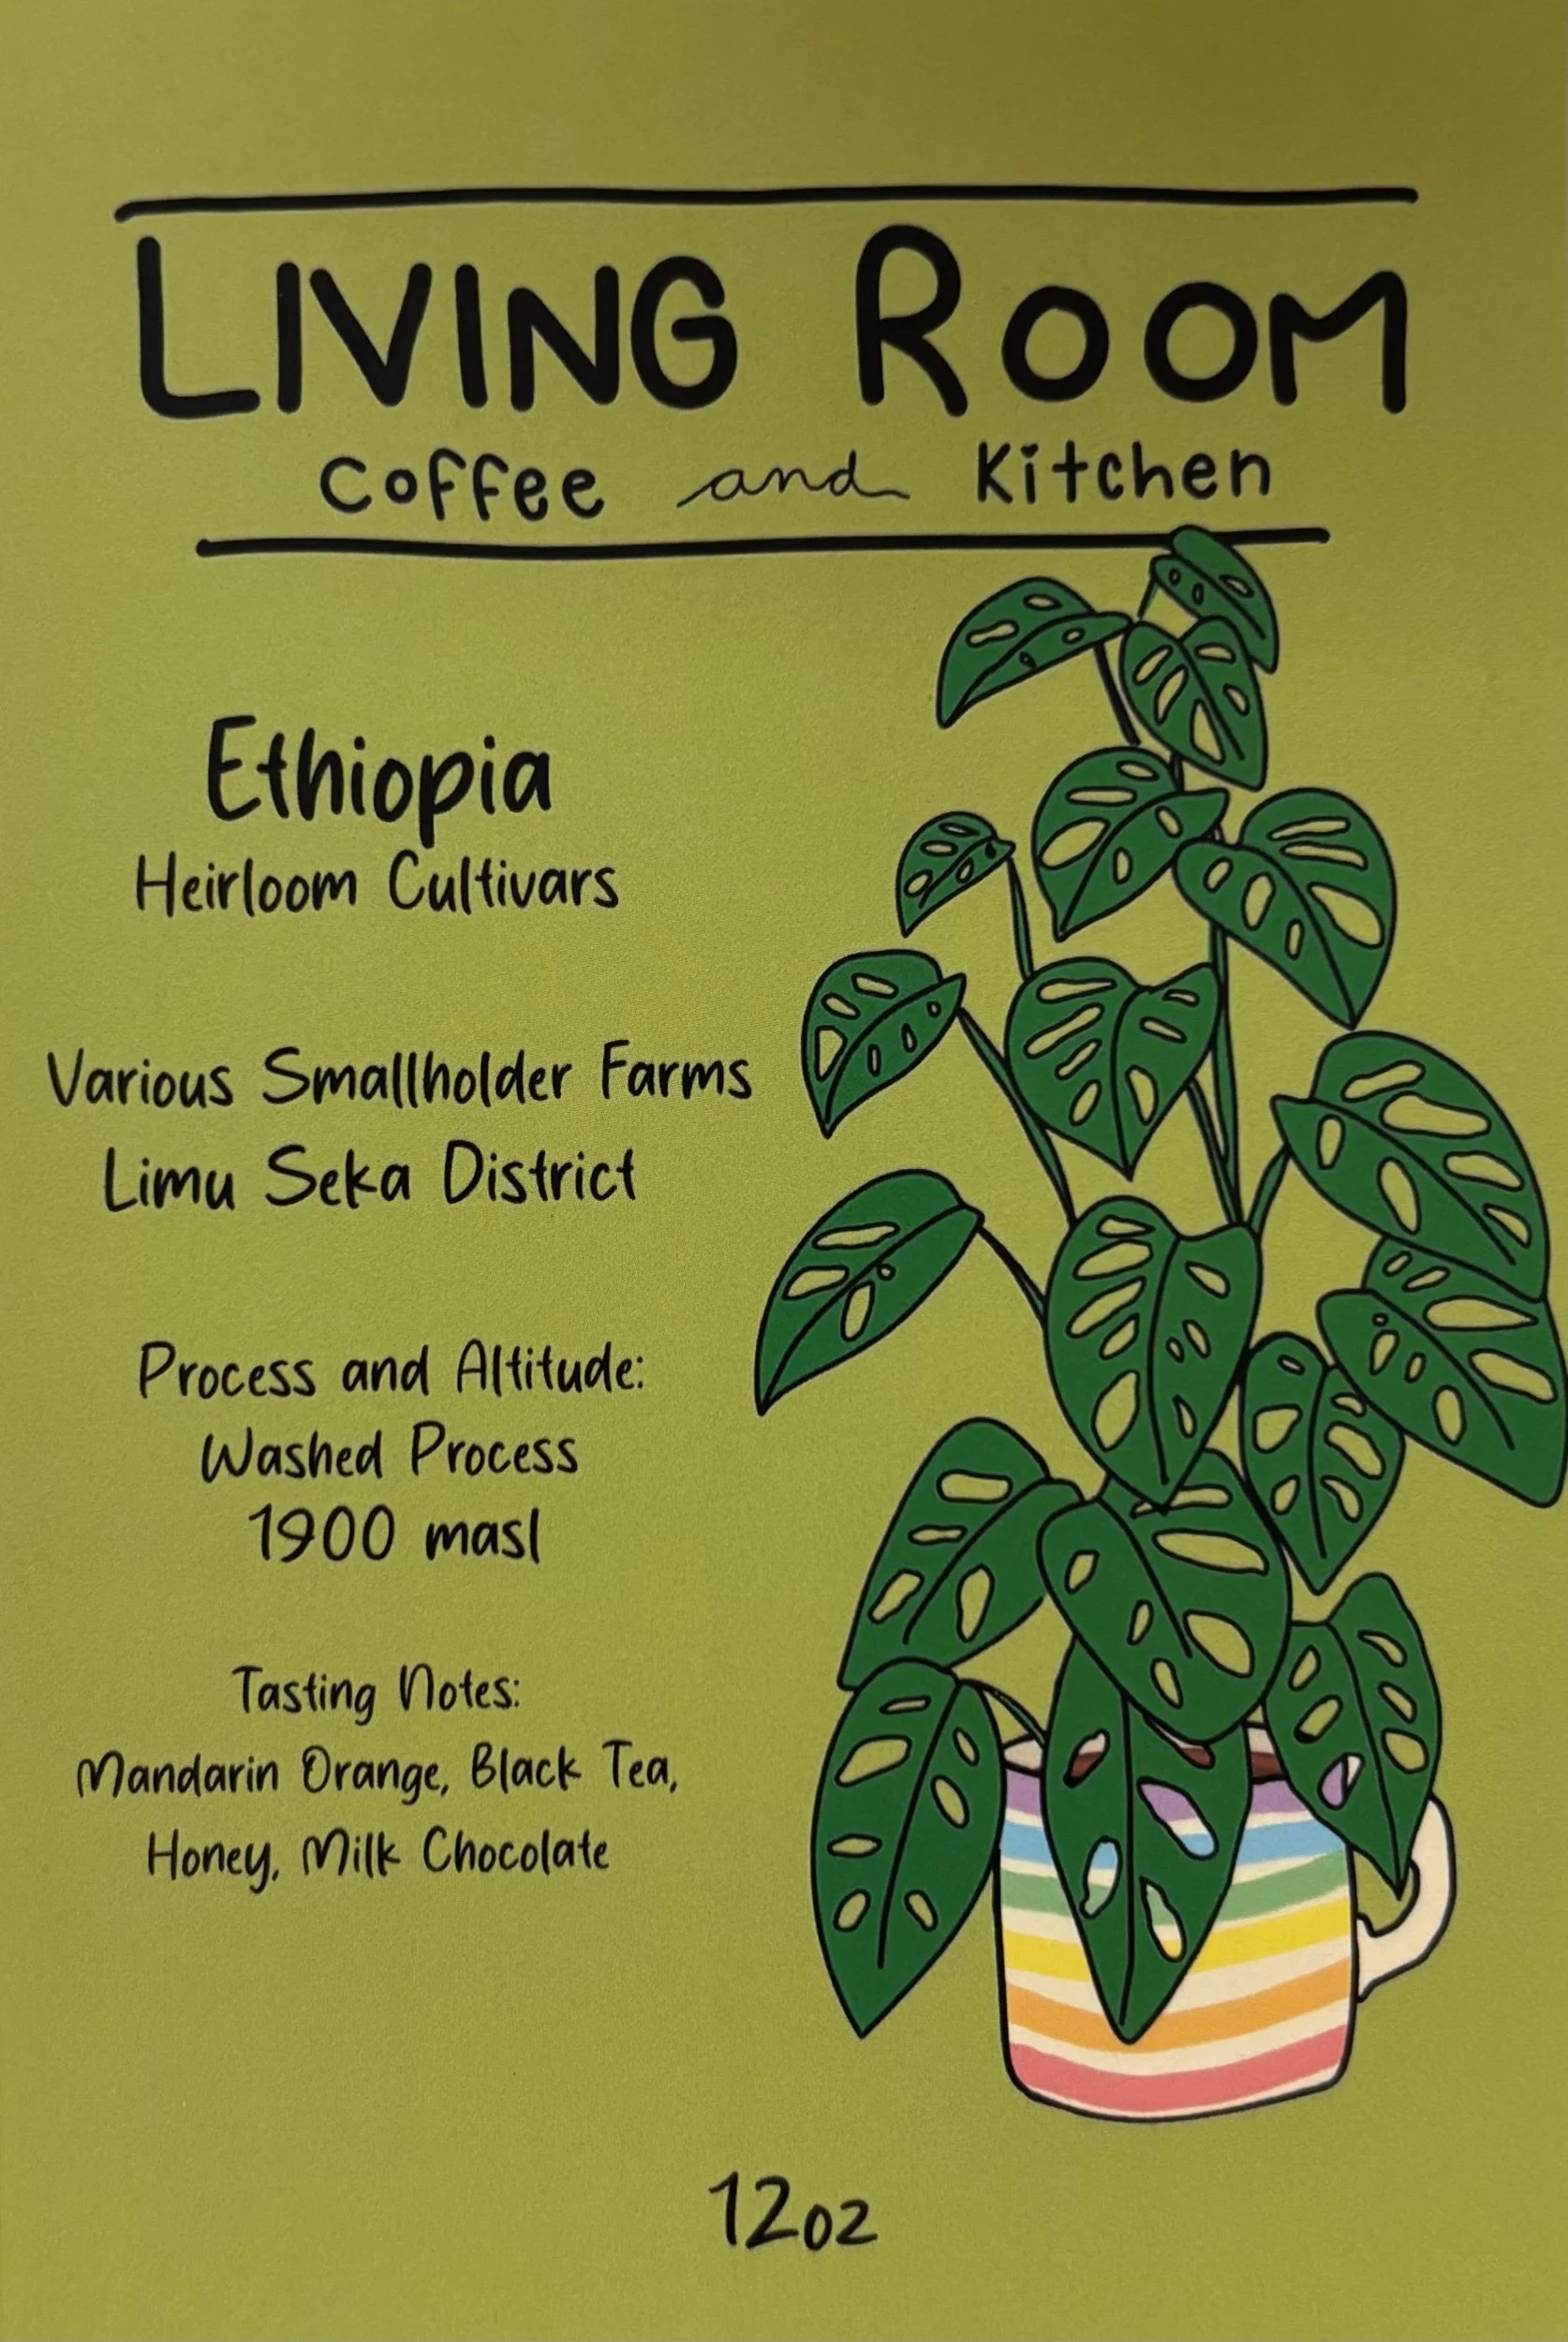 LIVING ROOM
Coffee and Kitchen
Ethiopia
Heirloom Cultivars
Various Smallholder Farms
Limu Seka District
Process and Altitude:
Washed Process
1900 masl
Tasting Notes:
Mandarin Orange, Black Tea,
Honey, Milk Chocolate
12oz